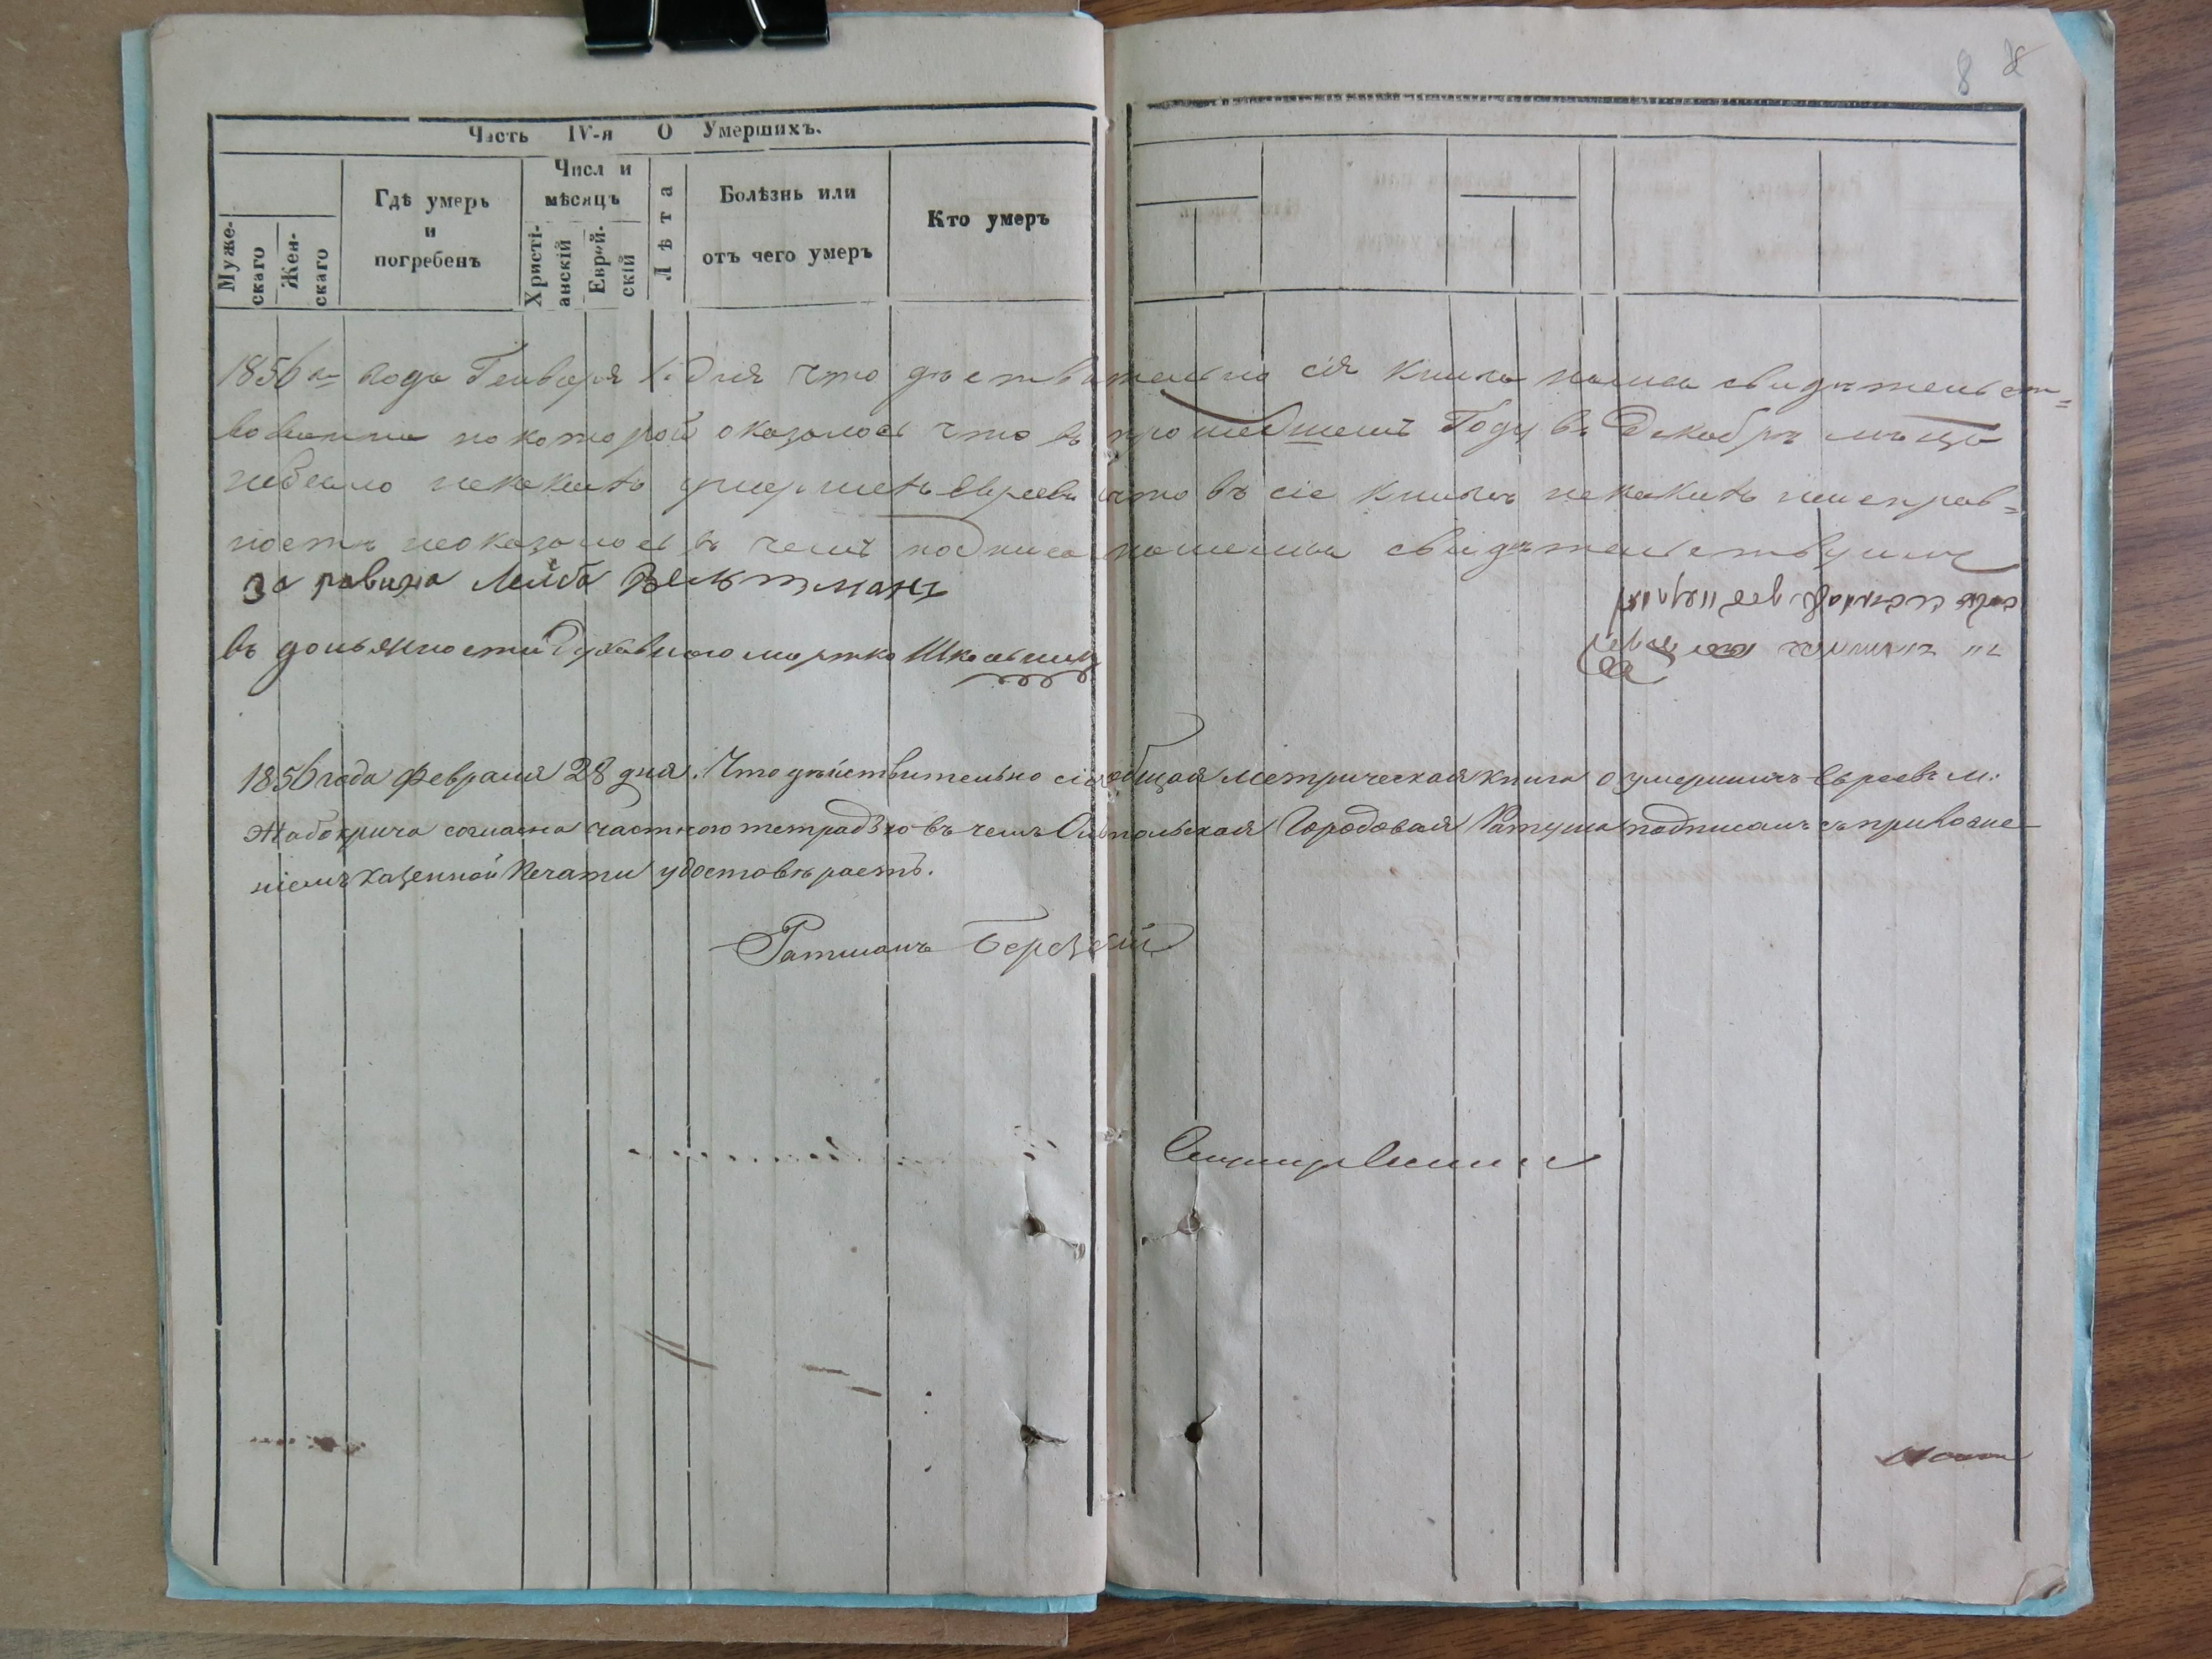 8 8
Часть IV-я О Умершихъ.
Муже-
скаго
Жен-
скаго
Гдѣ умеръ
и
погребенъ
Числ и
мѣсяцъ
Христі-
анскій
Еврей-
скій
Лѣта
Болѣзнь или
отъ чего умеръ
Кто умеръ
1856 го года Генваря 1. Дня что дѣствительно сія книга нами свидѣтельст=
вованна по которой оказалось что въ прошедшемъ Году въ Декабрѣ мѣца
небыло некакихъ умершихъ Евреевъ что въ сіе книгѣ некакихъ неисправ=
ностѣ неоказалось въ чемъ подписа нашемы свидѣтельствуимъ
За равина Лейба Вельтманъ
въ должности Духовного мортко Школьникъ
1856 года Февраля 28 дня. Что дѣйствительно сія общая метрическая книга о умершихъ Евреевъ м:
Жабокрича согласна частною тетрадью въ чемъ Ольгопольская Городовая Ратуша подписомъ съ приложе-
ніемъ казенной Печати удостовѣряетъ.
Ратманъ Березкій